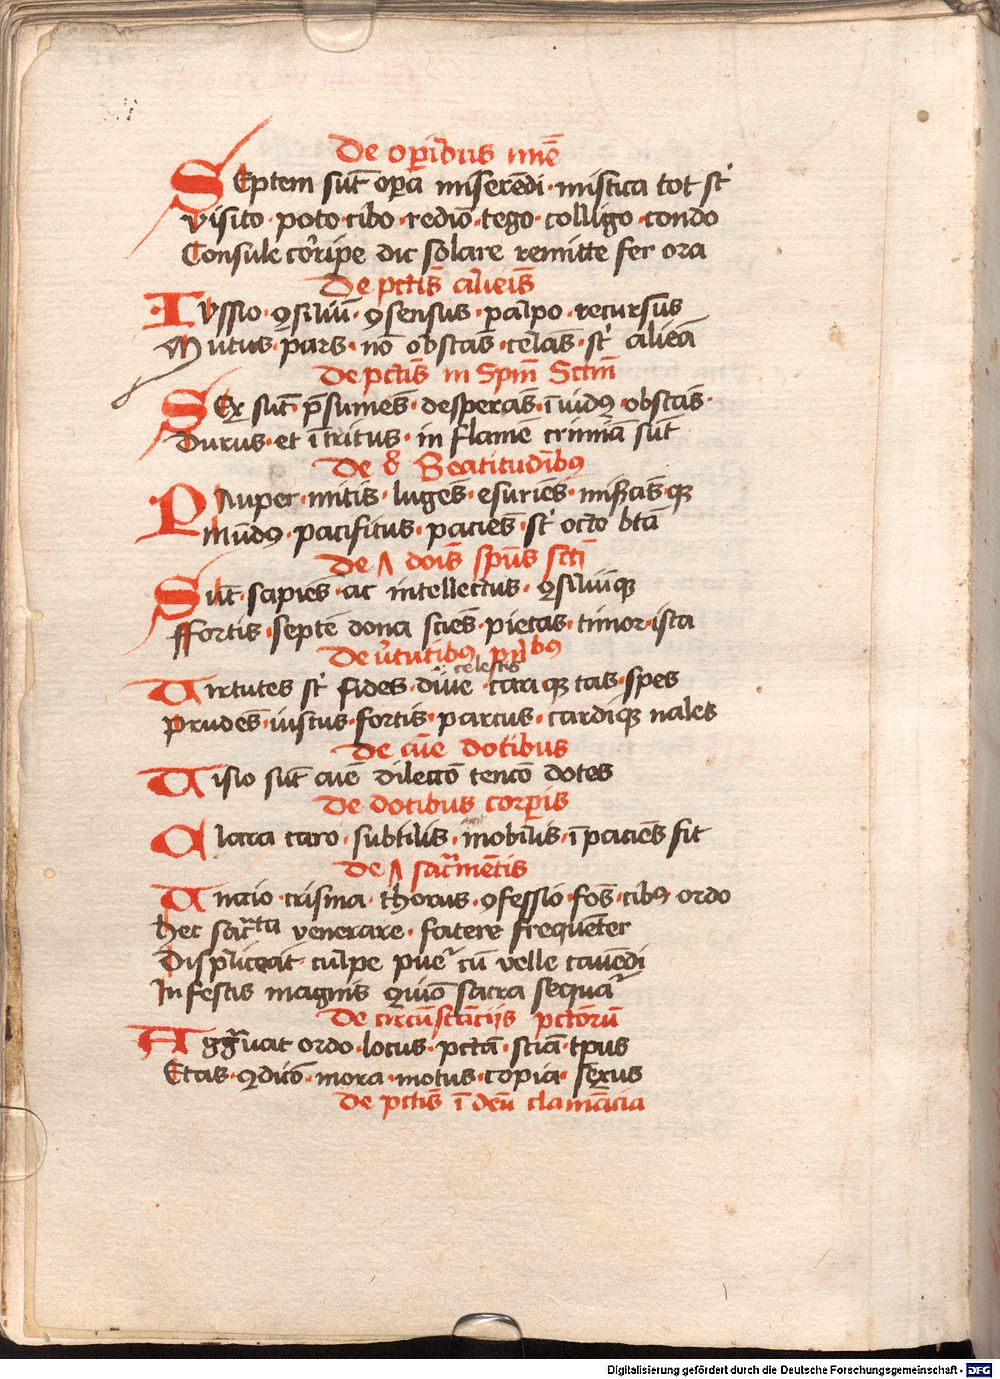 De op̄ibus mīe
Septem sūt op̄a miserēdi · mistica tot st̄
visito · poto · cibo · redīo · tego · colligo · condo
Consule cor̄ipe dic solare remitte fer ora
De pctīs alieīs
Iussio · ꝯsiliū · ꝯsensus · palpo · recursus
Mutus · pars · nō obstās · celās · st̄ aliēa
De pctīs in Spm̄ Sctm̄
Sex sūt p̄sumēs · desperās · īuidꝰ · obstās ·
Durus · et ītritus · in flamē crimīa sūt
De 8 Beatitudībꝰ
Pauper · mitis · lugēs · esuriēs · misɜcās qꝫ
mūdꝰ · pacificus · paciēs · st̄ octo btā
De ʌ doīs spūs scti
Sūt · sapiēs · ac intellectus · ꝯsiliūqꝫ
ffortis · septē dona sciēs · pietas · timor · ista
De v̄tutibꝰ pn̄bꝰ
celestes
Virtutes st̄ fides · diue cari qꝫ tas · spes
Prudēs · iustus · fortis · parcus · cardiqꝫ nales
De aīe dotibus
Visio sūt aīe dilectō tencō dotes
De dotibus corꝑis
Clara caro · subtilis · mobilis · īpaciēs fit
De ʌ sacr̄mētis
Vnctio · crisma · thorus · ꝯfessio · fōs · cibꝰ · ordo
hec sacr̄ta venerare · fatere frequēter
Displiceat · culpe pue cū velle cauēdi
In festis magnis quīo sacra sequar̄
De circūstāciis pctōrū
Aggr̄uat ordo · locus · pctā · sciā · tp̄us
Etas · ꝯdicō · mora · motus · copia · sexus
De pctīs ī deū clamācia
Digitalisierung gefördert durch die Deutsche Forschungsgemeinschaft - DFG